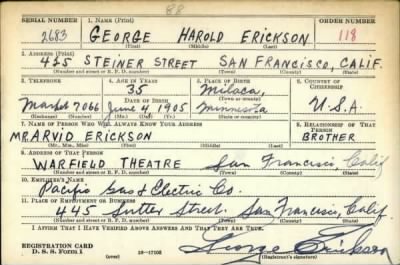 88
SERIAL NUMBER 1. NAME (Print) ORDER NUMBER
2683 GEORGE HAROLD ERICKSON 118
(First) (Middle) (Last)
2. ADDRESS (Print)
425 STEINER STREET SAN FRANCISCO, CALIF.
(Number and street or R. F. D. number) (Town) (County) (State)
3. TELEPHONE 4. AGE IN YEARS 5. PLACE OF BIRTH 6. COUNTRY OF CITIZENSHIP
35 Milaca,
DATE OF BIRTH (Town or county)
Market 7066 June 4, 1905 Minnesota U.S.A.
(Exchange) (Number) (Mo.) (Day) (Yr.) (State or country)
7. NAME OF PERSON WHO WILL ALWAYS KNOW YOUR ADDRESS 8. RELATIONSHIP OF THAT PERSON
MR. ARVID ERICKSON BROTHER
(Mr., Mrs., Miss) (First) (Middle) (Last)
9. ADDRESS OF THAT PERSON
WARFIELD THEATRE San Francisco Calif
(Number and street or R. F. D. number) (Town) (County) (State)
10. EMPLOYER'S NAME
Pacific Gas & Electric Co.
11. PLACE OF EMPLOYMENT OR BUSINESS
445 Sutter Street. San Francisco Calif.
(Number and street or R. F. D. number) (Town) (County) (State)
I AFFIRM THAT I HAVE VERIFIED ABOVE ANSWERS AND THAT THEY ARE TRUE.
REGISTRATION CARD
D. S. S. Form 1 (over) 16—17105 George Erickson
(Registrant's signature)